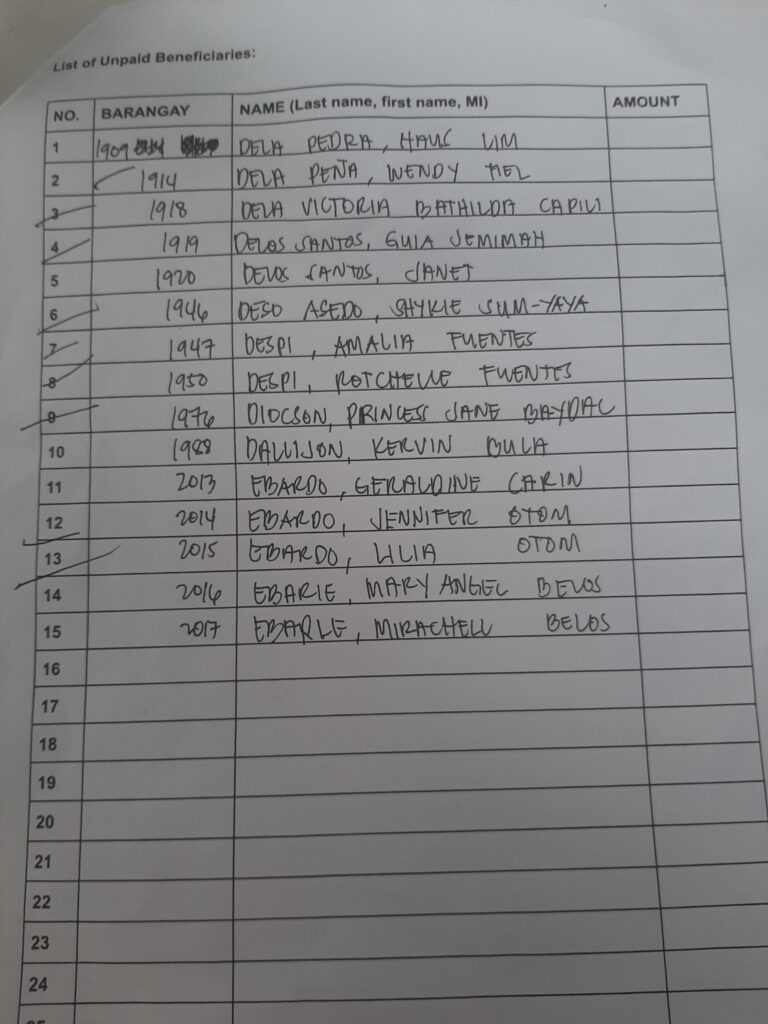 List of Unpaid Beneficiaries:
NO. BARANGAY NAME (Last name, first name, MI) AMOUNT
1 1909 DELA PEDRA, HAUS LIM
2 1914 DELA PEÑA, WENDY MEL
3 1918 DELA VICTORIA BATHILDA CAPILI
4 1919 DELOS SANTOS, GUIA JEMIMAH
5 1920 DELOS SANTOS, JANET
6 1946 DESO ASEDO, SHYKIE SUM-YAYA
7 1947 DESPI, AMALIA FUENTES
8 1950 DESPI, ROTCHELLE FUENTES
9 1976 DIOCSON, PRINCESS JANE BAYDAL
10 1988 DALLIJON, KERVIN GULA
11 2013 EBARDO, GERALDINE CARIN
12 2014 EBARDO, JENNIFER OTOM
13 2015 EBARDO, LILIA OTOM
14 2016 EBARLE, MARY ANGEL BELOS
15 2017 EBARLE, MIRACHELL BELOS
16
17
18
19
20
21
22
23
24